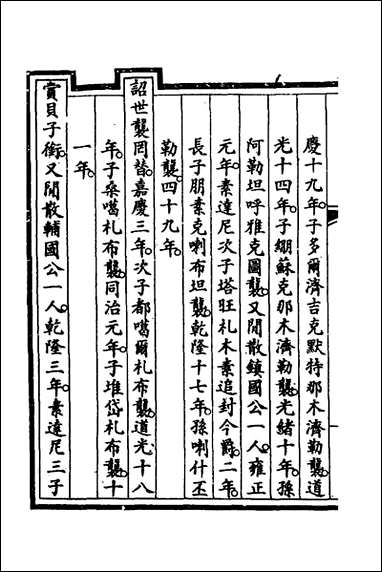 慶十九年。子多爾濟吉克默特那木濟勒襲。道
光十四年。子綳蘇克那木濟勒襲。光緒十年。孫
阿勒坦呼雅克圖襲。又閒散鎮國公一人。雍正
元年。素達尼次子塔旺札木素追封今爵。二年。
長子朋素克喇布坦襲。乾隆十七年。孫喇什丕
勒襲。四十九年。
詔世襲罔替。嘉慶三年。次子都噶爾札布襲。道光十八
年。子桑噶札布襲。同治元年。子堆岱札布襲。十
一年。
賞貝子銜。又閒散輔國公一人。乾隆三年。素達尼三子